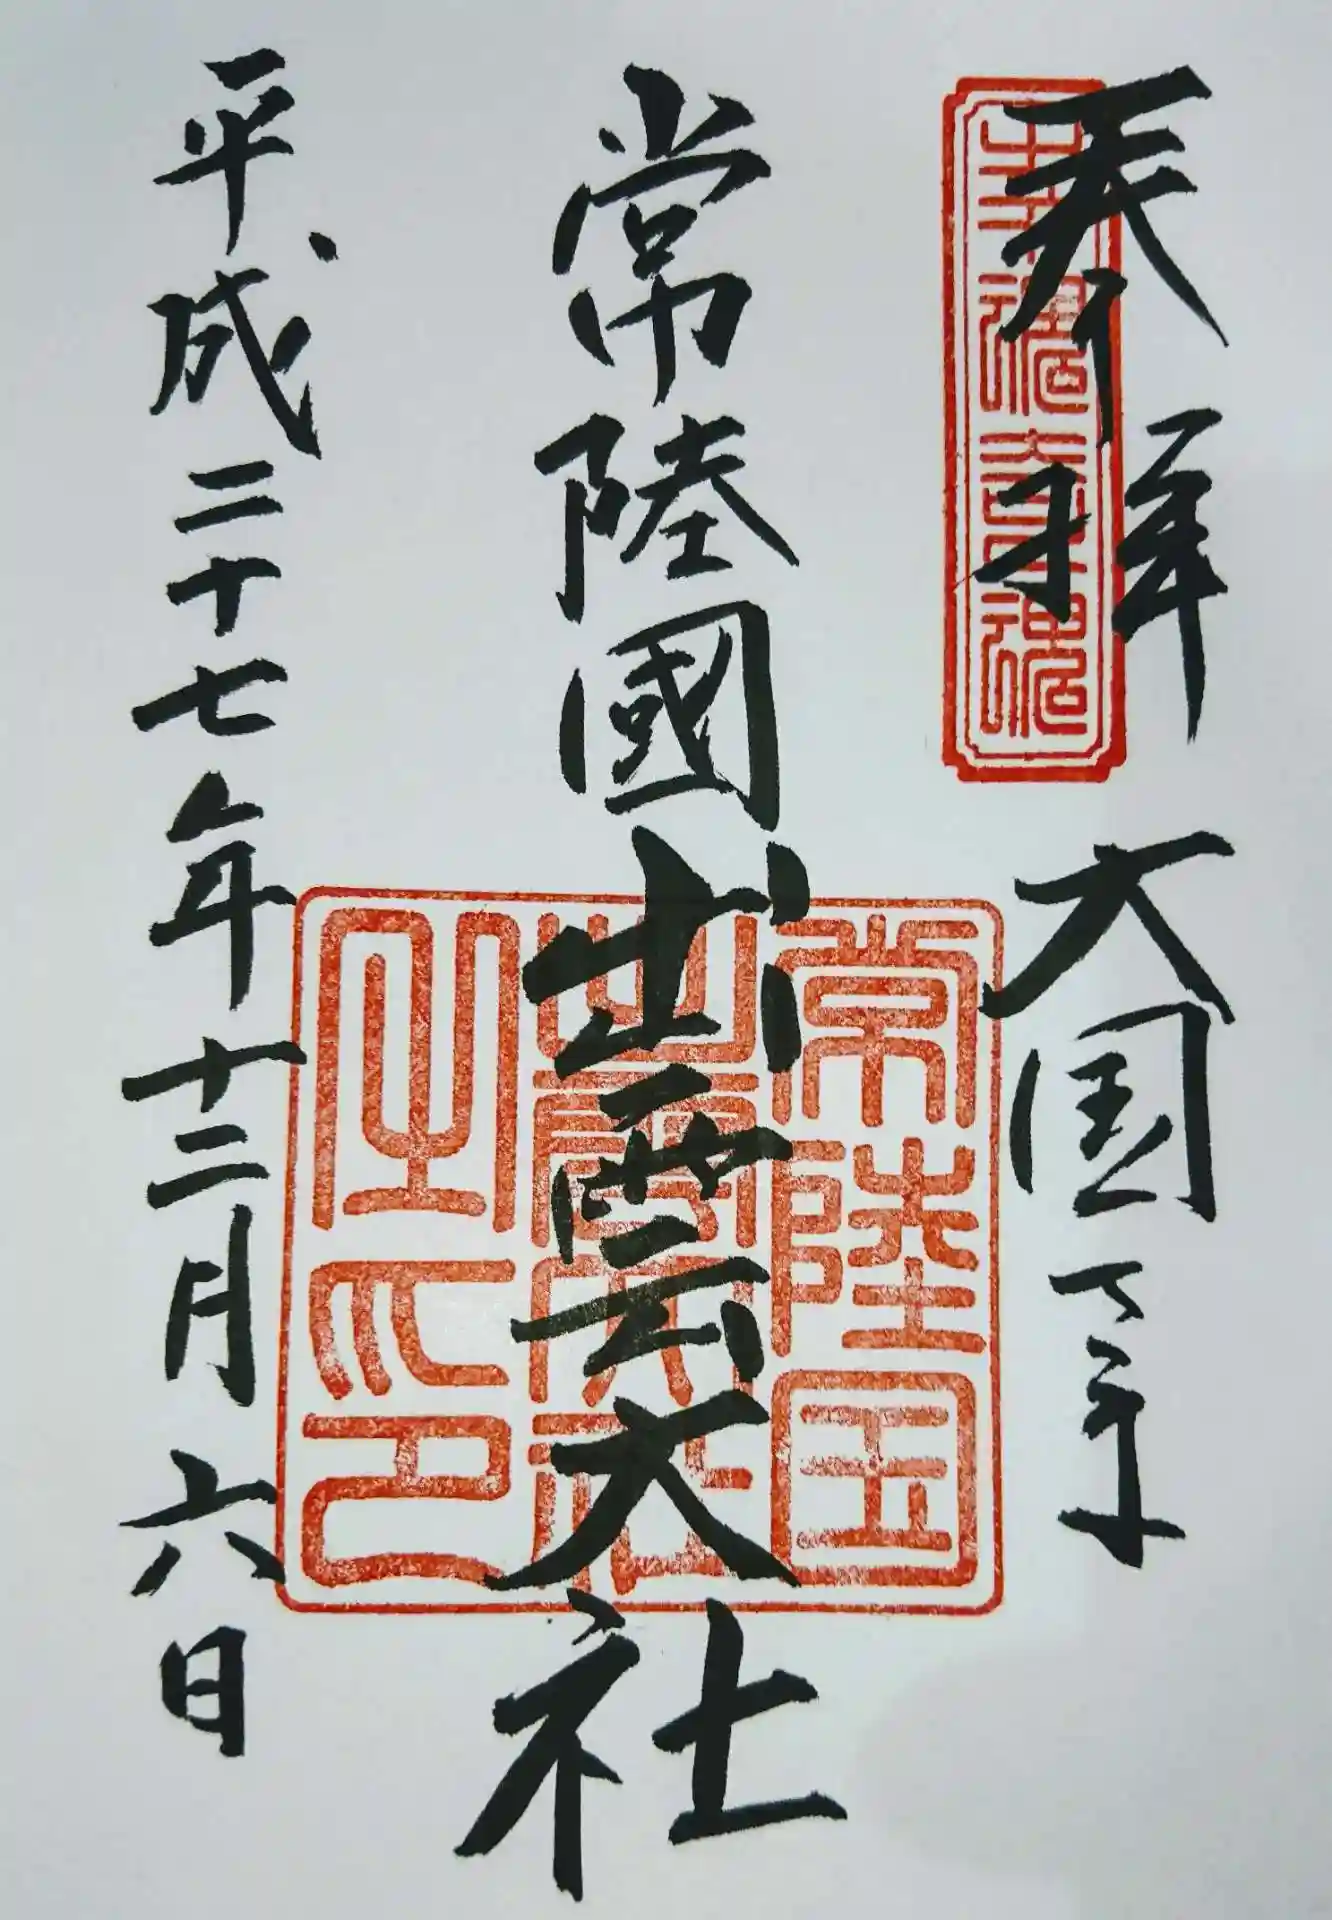 奉拝 大国
幸魂奇魂
常陸國出雲大社
常陸国
出雲大社
之印
平成二十七年十二月六日